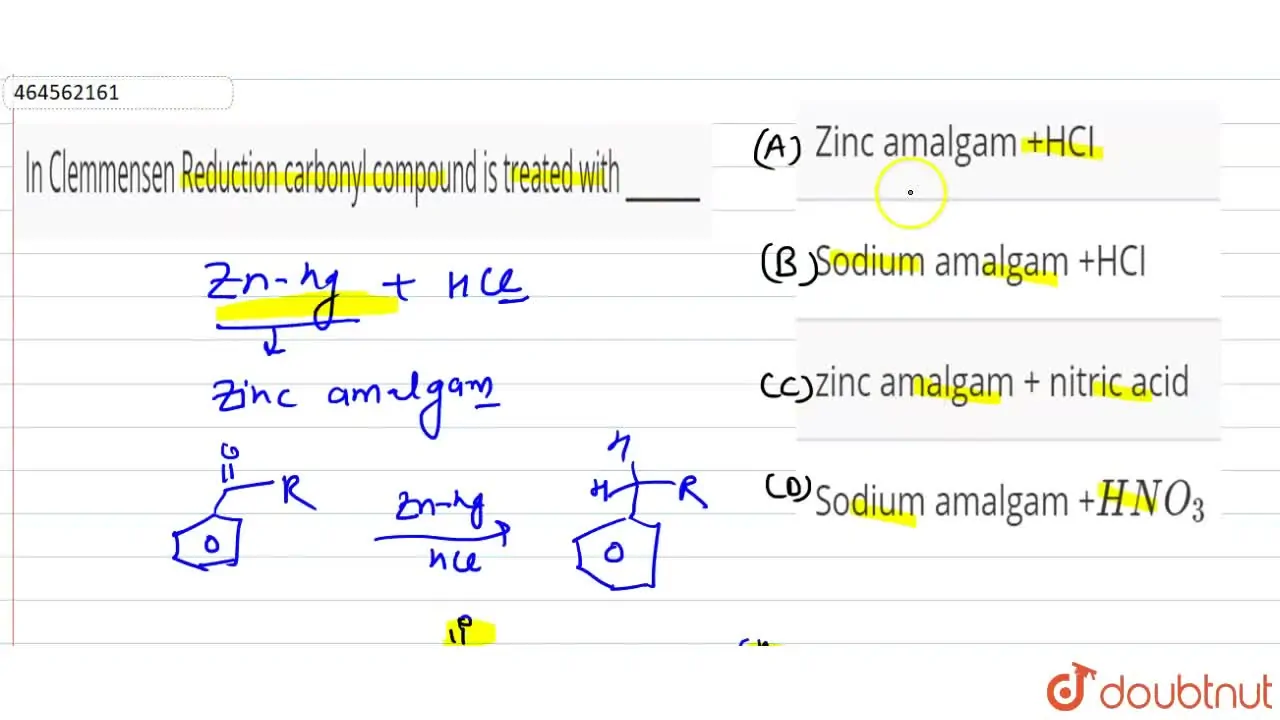 464562161
In Clemmensen Reduction carbonyl compound is treated with _____
Zn-hg + HCl
Zinc amalgam
O
R
Zn-hg
HCl
H
H
R
(A) Zinc amalgam +HCl
(B) Sodium amalgam +HCl
(C) zinc amalgam + nitric acid
(D) Sodium amalgam +HNO₃
doubtnut